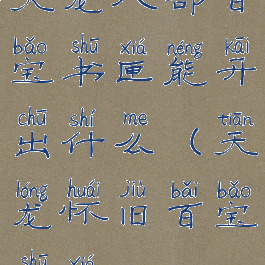 天龙八部百
bǎo shū xiá néng kāi
宝书匣能开
chū shí me tiān
出什么（天
lóng huái jiù bǎi bǎo
龙怀旧百宝
shū xiá